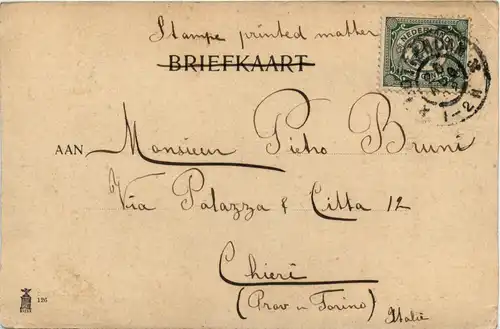 Stampe printed matter
NEDERLAND
BRIEFKAART
AAN Monsieur Pietro Bruni
Via Palazza & Citta 12
Chieri
(Prov. in Torino)
Italië
126
1-2N